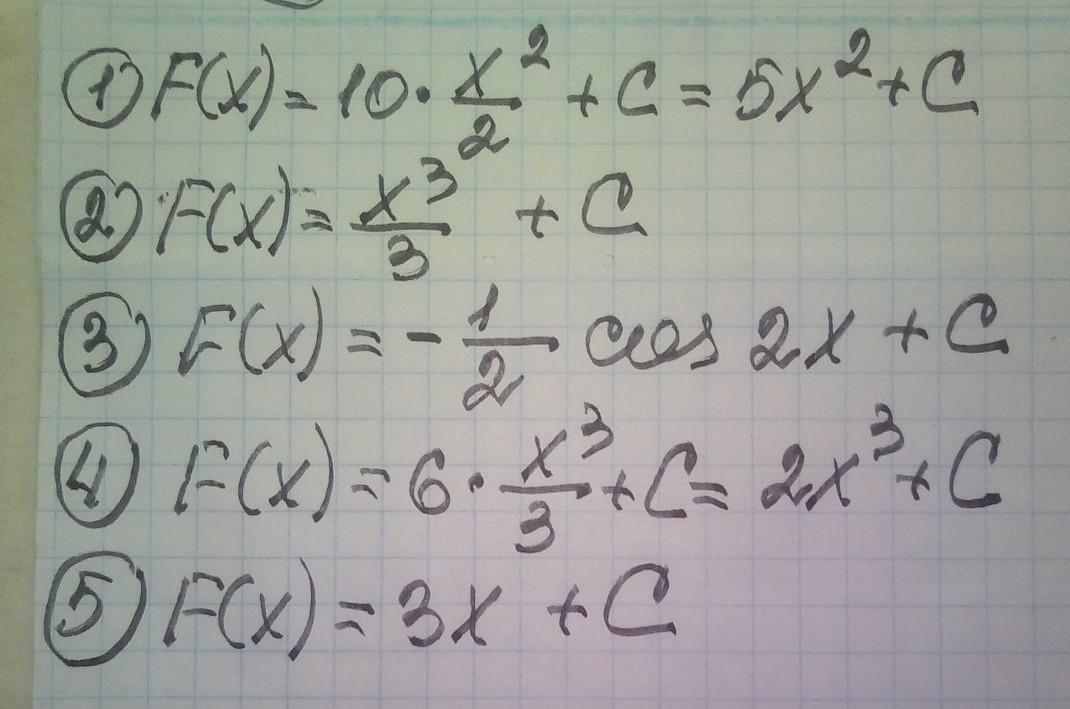 ① F(x) = 10 · x²/2 + C = 5x² + C
② F(x) = x³/3 + C
③ F(x) = - 1/2 cos 2x + C
④ F(x) = 6 · x³/3 + C = 2x³ + C
⑤ F(x) = 3x + C